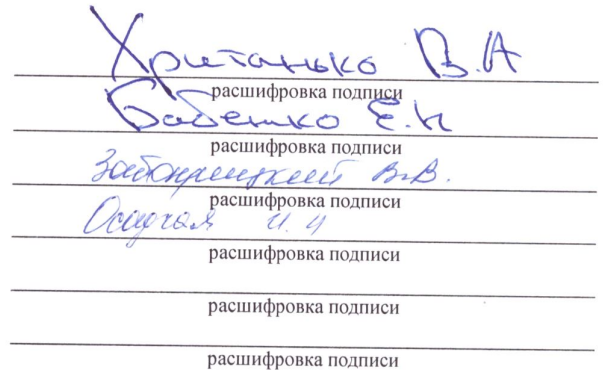 Хританько В.А
расшифровка подписи
Бабенко Е.Н
расшифровка подписи
В.В.
расшифровка подписи
Осадчая И.И
расшифровка подписи
расшифровка подписи
расшифровка подписи